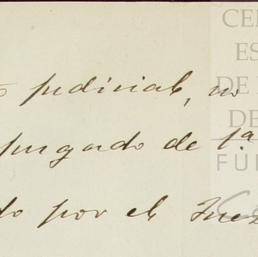 judicial, no
juzgado de 1.ª
do por el Juez
CE
ES
DE
DE
FU